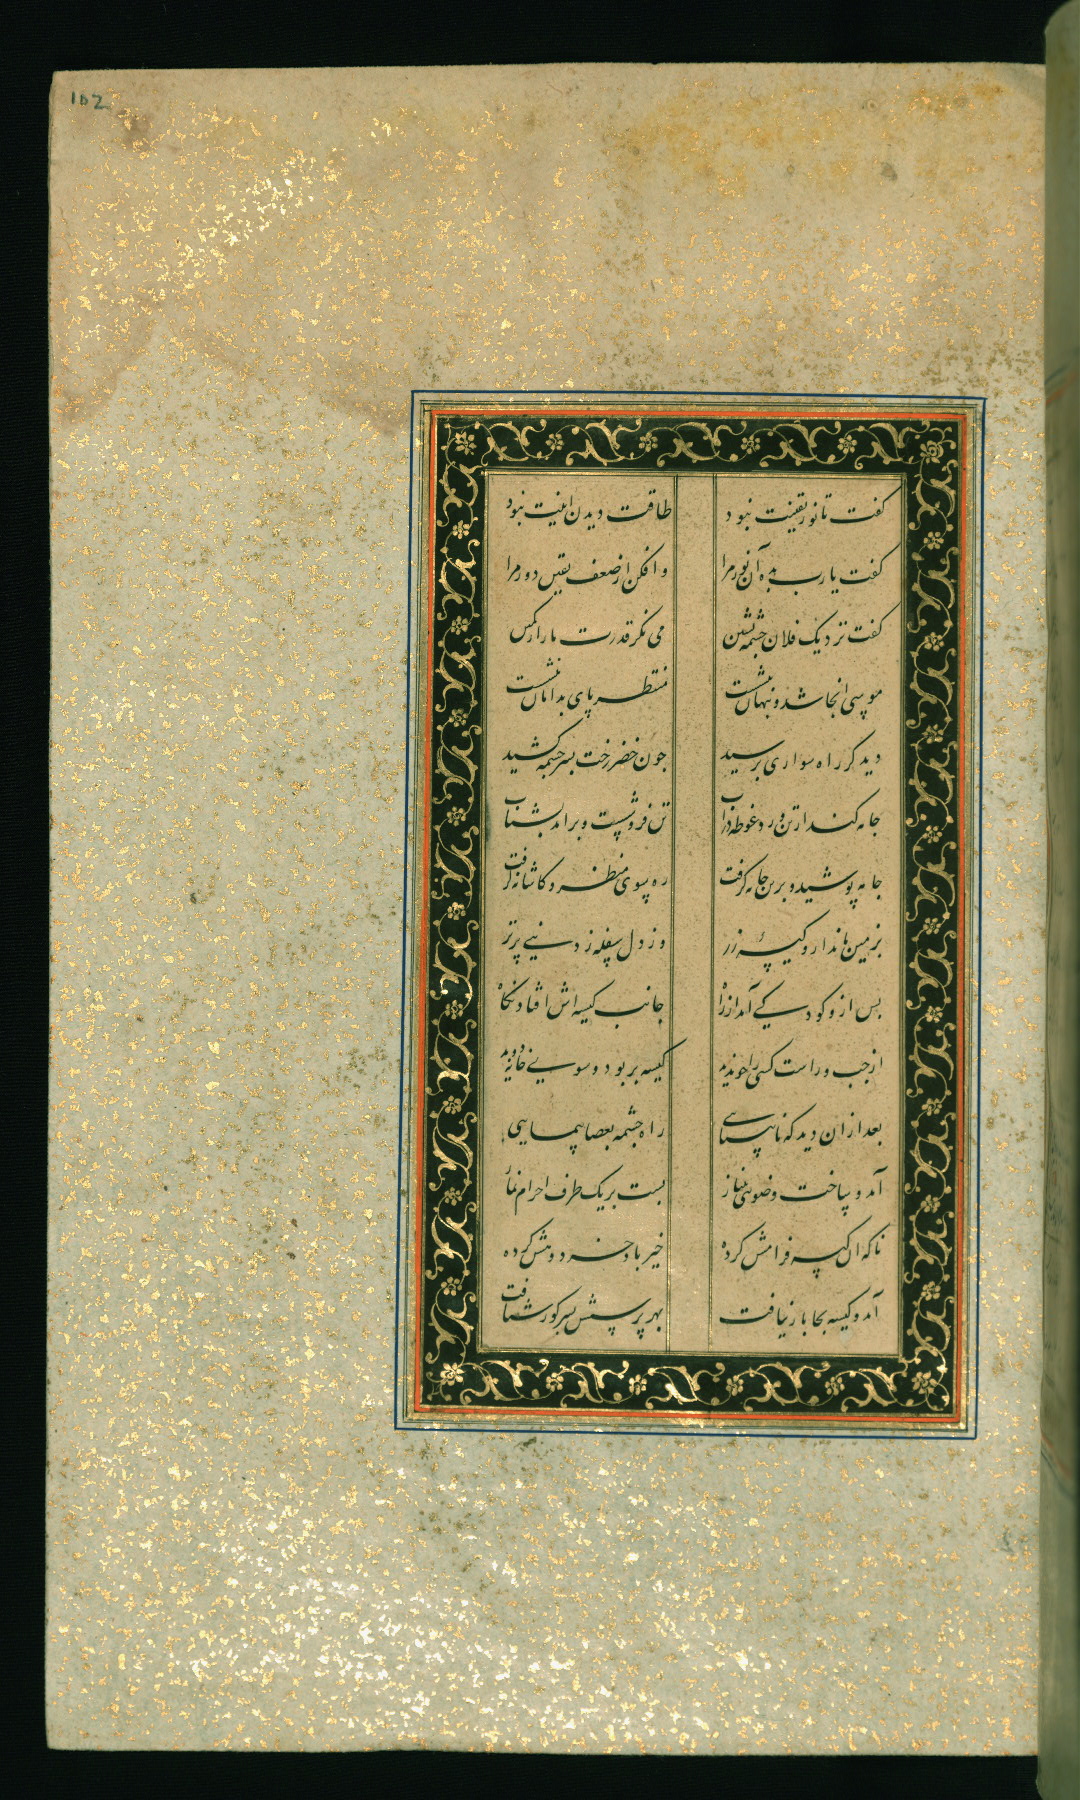 102
کفت تا نور یقینت نبود    طاقت دیدن اینیت نبود
کفت یارب بده آن نور مرا    وافکن از ضعف یقین دور مرا
کفت نزدیک فلان چشمه نشین    می نکر قدرت ما را ز کمین
موسی انجا شد و پنهان بنشست    منتظر پای بدامان بنشست
دید کز راه سواری برسید    چون خضر رخت بسرچشمه کشید
جامه کند از تن و زد غوطه در اب    تن فرو شست و برامد بشتاب
جامه پوشید و بره خانه گرفت    ره سوی منظر و کاشانه گرفت
بر زمین ماند ازو کیسه زر    وز دل سفله ز دنیی پرتر
پس ازو کودکی آمد از راه    جانب کیسه اش افتاد نکاه
از چپ و راست کسی را چو ندید    کیسه بربود و سوی خانه دوید
بعد ازان دید که نابینایی    راه چشمه بعصا پیمایی
آمد و ساخت وضویی بنیاز    بست بر یک طرف احرام نماز
ناکه ان کیسه فرامش کرده    خیرباد خرد و هش کرده
آمد و کیسه بجا باز نیافت    بهر پرسش بسر کور شتافت